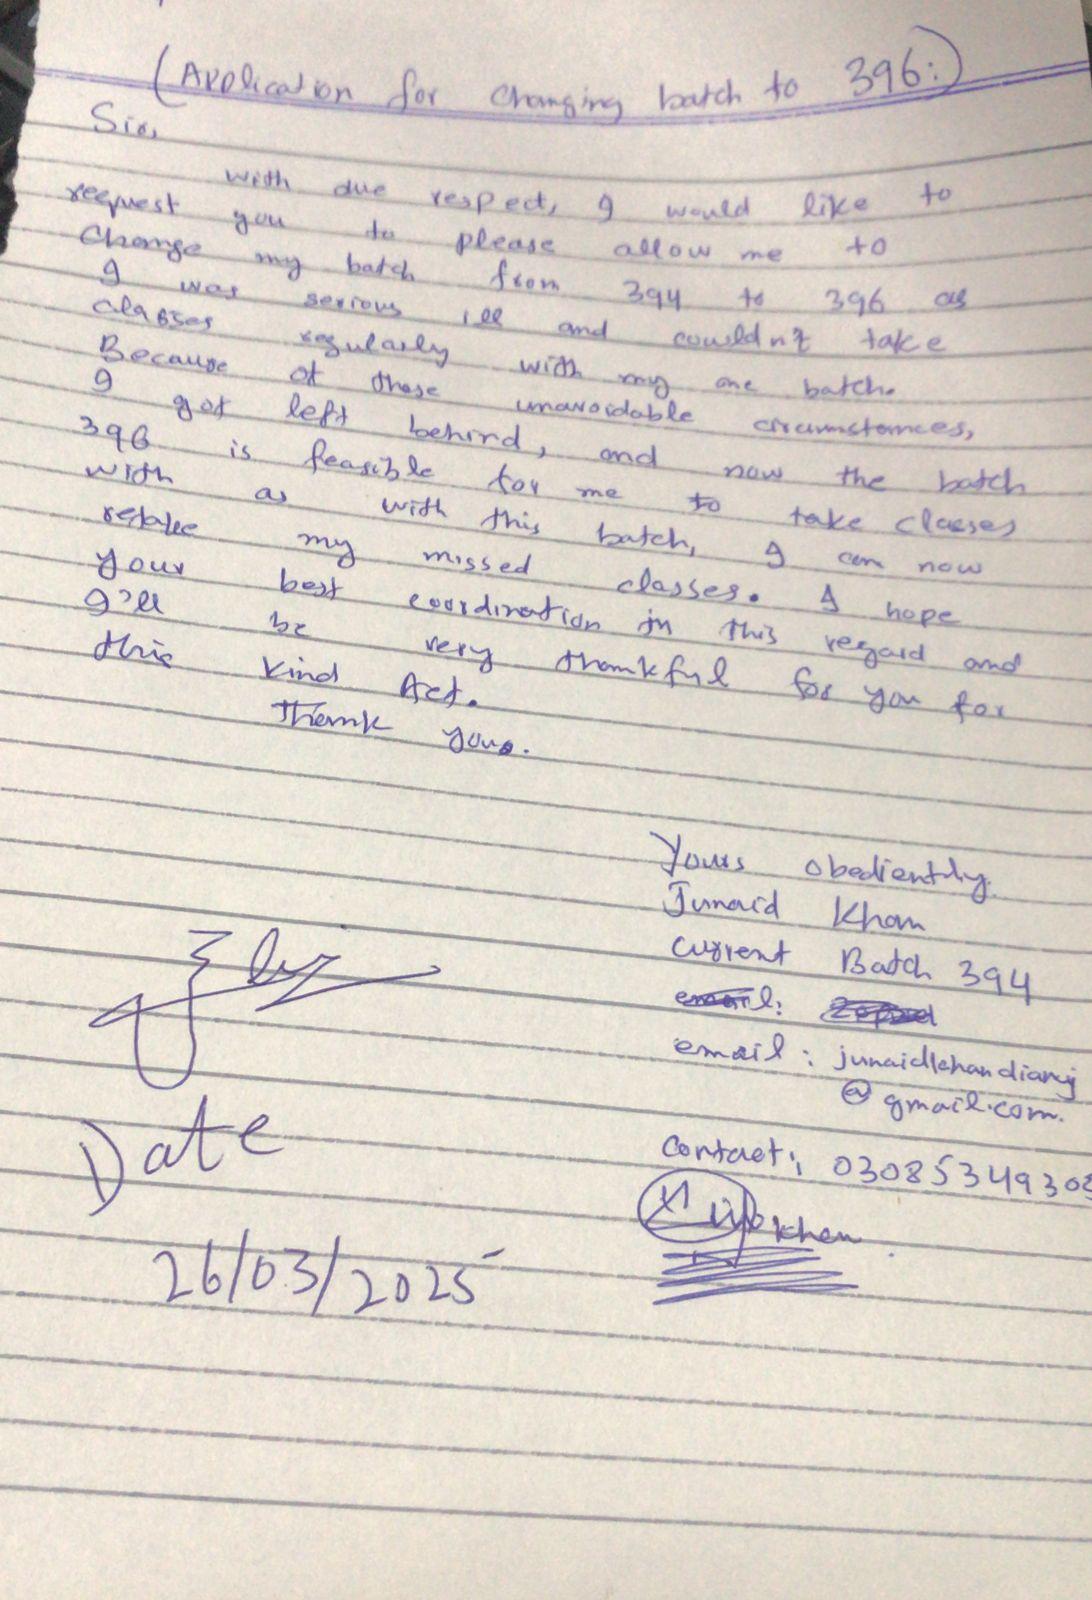 (Application for changing batch to 396:)
Sir,
with due respect, I would like to
request you to please allow me to
change my batch from 394 to 396 as
I was serious ill and couldn't take
classes regularly with my one batch.
Because of these unavoidable circumstances,
I got left behind, and now the batch
396 is feasible for me to take classes
with as with this batch, I can now
retake my missed classes. I hope
your best coordination in this regard and
I'll be very thankful for you for
this kind Act.
Thank you.
Yours obediently.
Junaid Khan
current Batch 394
email:
email: junaidkhandiary
@gmail.com.
Contact: 03085349308
khan
Date
26/03/2025